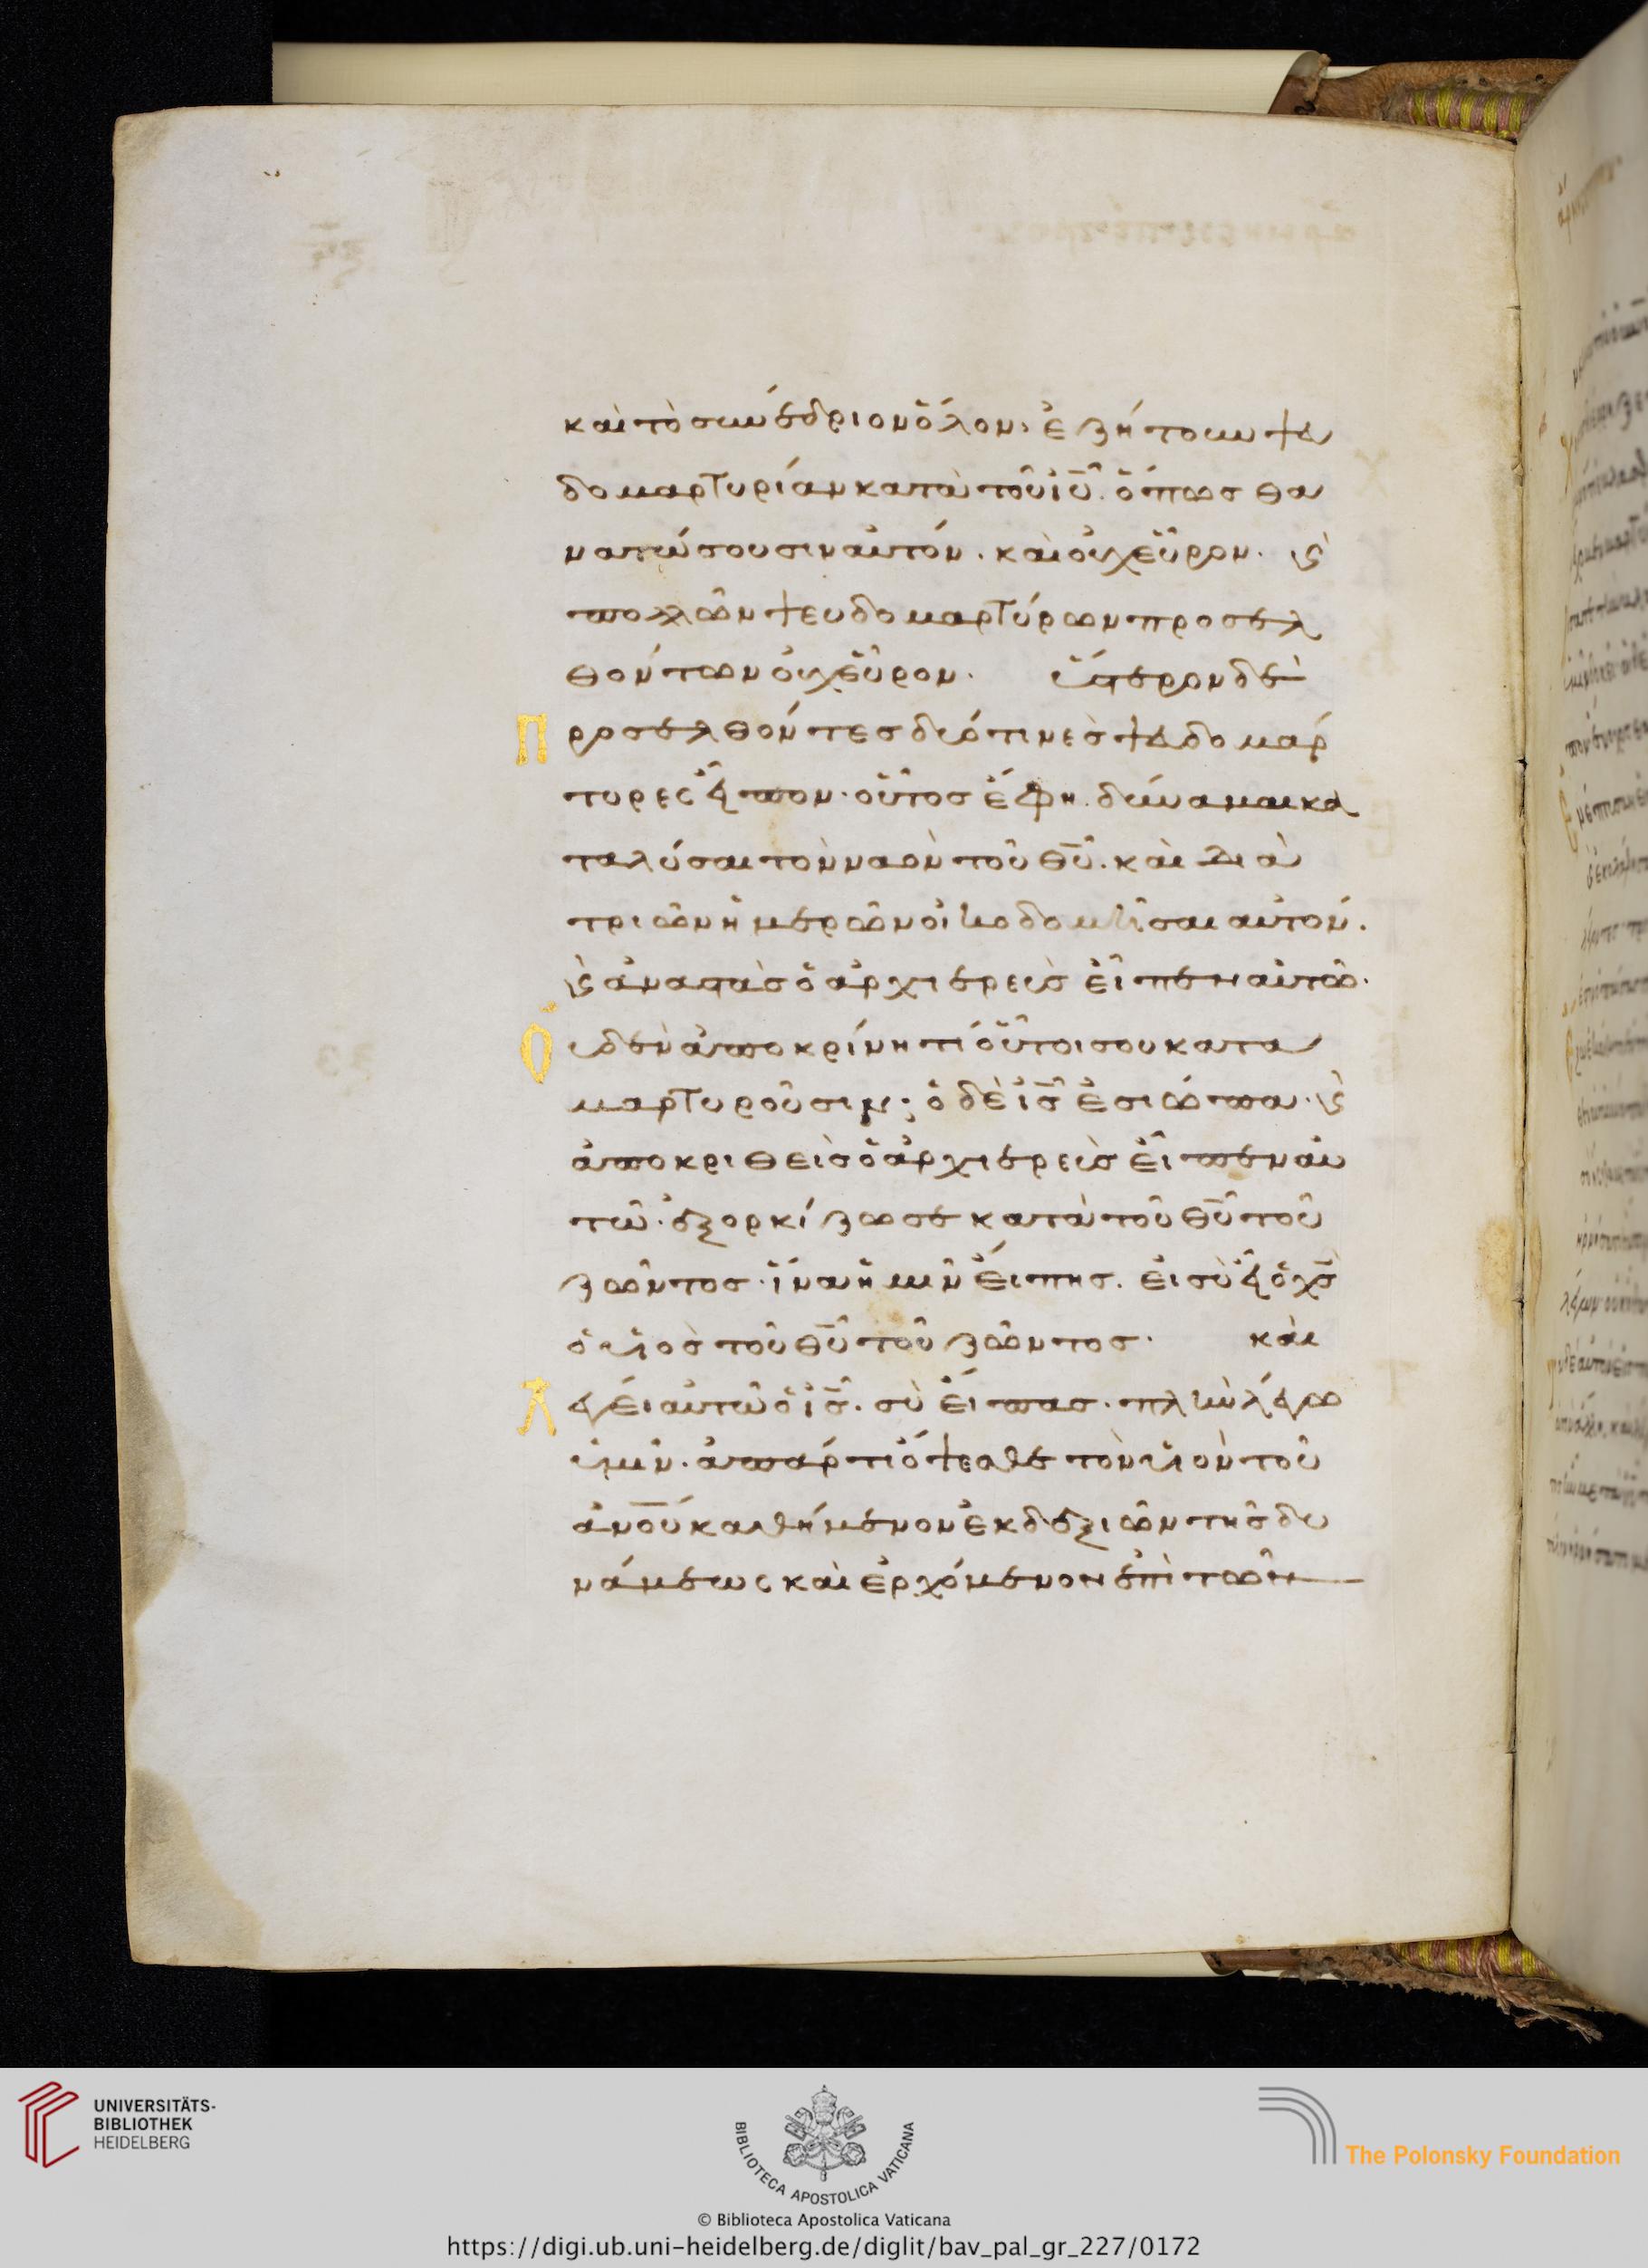 καὶ τὸ συνέδριον ὅλον· ἐζήτουν ψευ
δομαρτυρίαν κατὰ τοῦ ἰῦ. ὅπως θα
νατώσουσιν αὐτόν. καὶ οὐχ εὗρον. ϗ
πολλῶν ψευδομαρτύρων προσελ
θόντων οὐχ εὗρον. ὕστερον δὲ
Προσελθόντες δύό τινὲς ψευδομάρ
τυρες εἶπον· οὗτος ἔφη. δύναμαι κα
ταλύσαι τὸν ναὸν τοῦ θῦ. καὶ διὰ
τριῶν ἡμερῶν οἰκοδομῆσαι αὐτόν.
ϗ ἀναστὰς ὁ ἀρχιερεὺς εἶπεν αὐτῶ.
Οὐδὲν ἀποκρίνη τί οὗτοι σου κατα
μαρτυροῦσιν; ὁ δὲ ἰς ἐσιώπα. ϗ
ἀποκριθεὶς ὁ ἀρχιερεὺς εἶπεν αὐ
τῶ. ἐξορκίζω σε κατὰ τοῦ θῦ τοῦ
ζῶντος. ἵνα ἡμῖν εἴπης. εἰ σὺ εἶ ὁ χς
ὁ υἱὸς τοῦ θῦ τοῦ ζῶντος. καὶ
Λέγει αὐτῶ ὁ ἰς. σὺ εἴπας. πλὴν λέγω
ὑμῖν. ἀπάρτι ὄψεσθε τὸν υἱὸν τοῦ
ἀνοῦ καθήμενον ἐκ δεξιῶν τῆς δυ
νάμεως καὶ ἐρχόμενον ἐπὶ τῶν
UNIVERSITÄTS-
BIBLIOTHEK
HEIDELBERG
BIBLIOTECA APOSTOLICA VATICANA
The Polonsky Foundation
© Biblioteca Apostolica Vaticana
https://digi.ub.uni-heidelberg.de/diglit/bav_pal_gr_227/0172